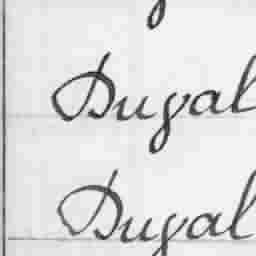 Dugal
Dugal